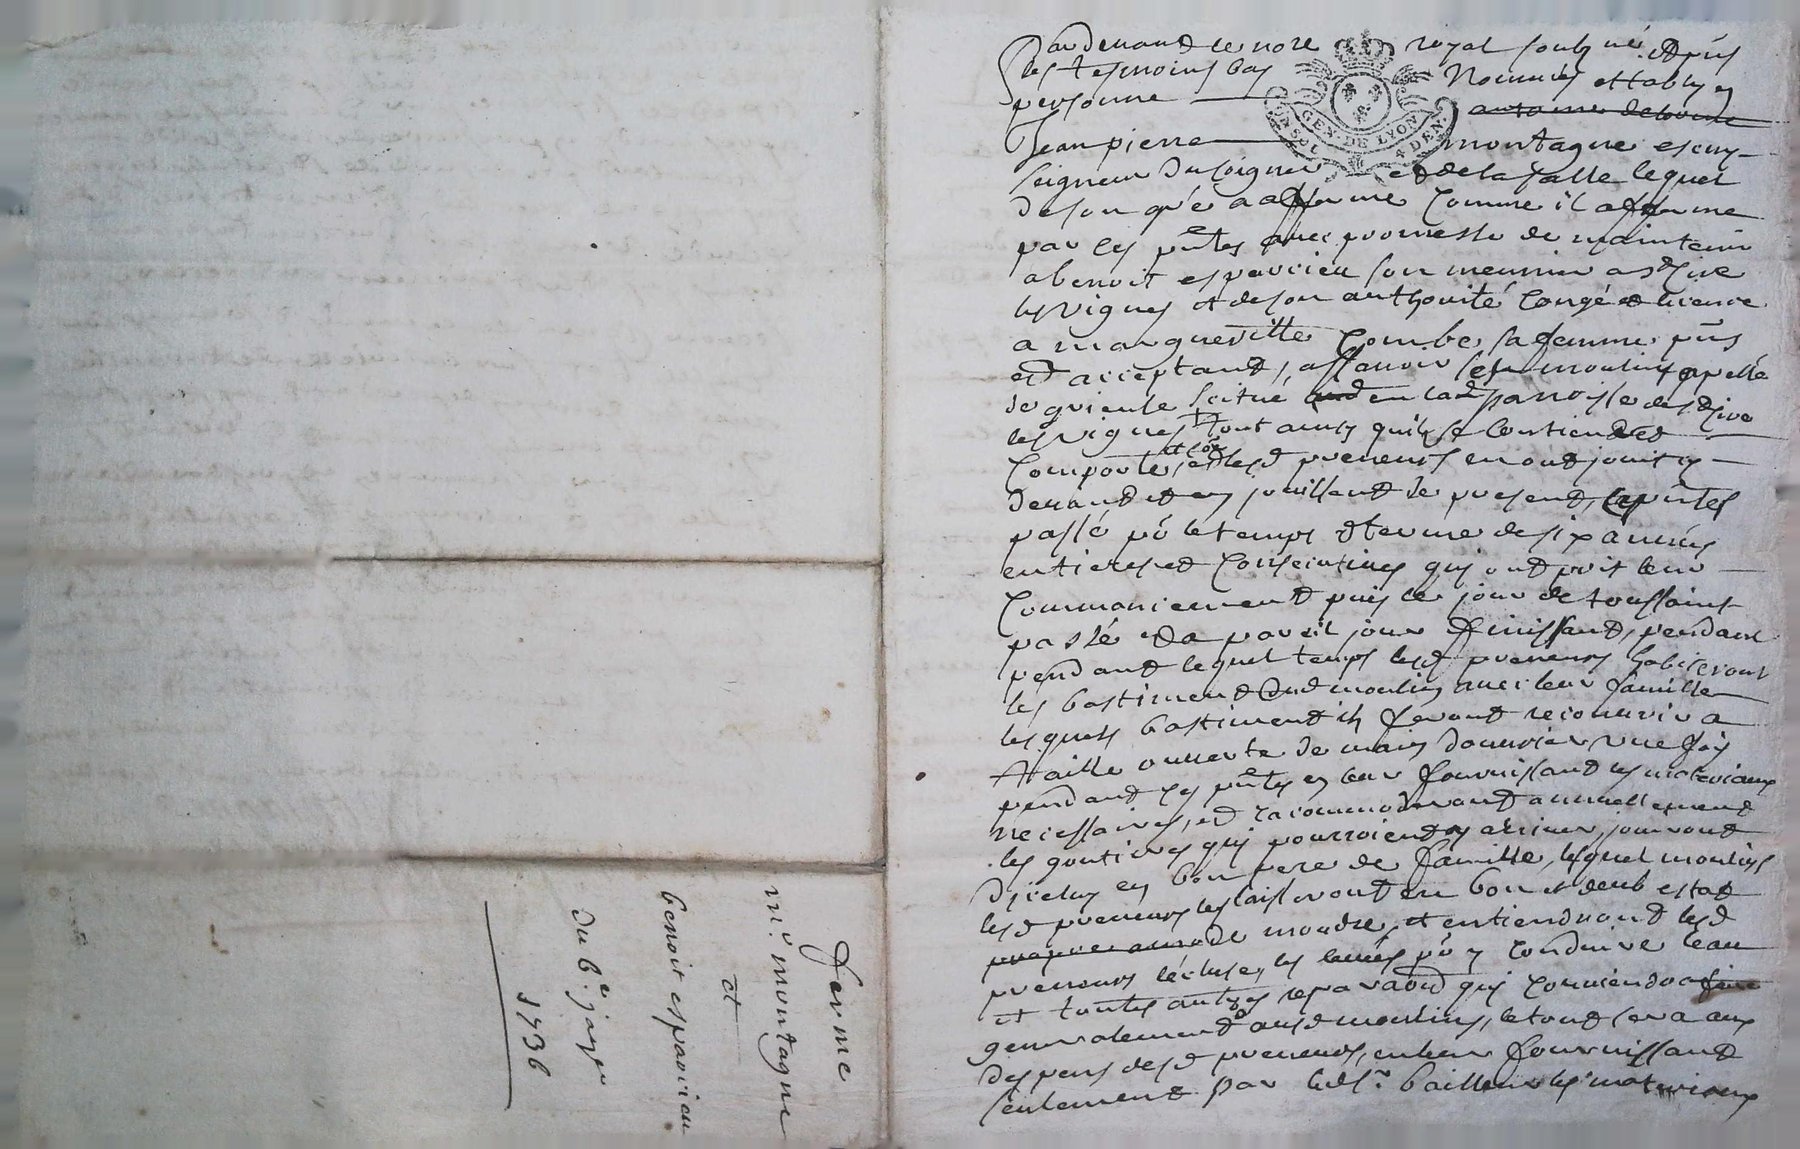 Par devant le nore royal soubz né et pñs
les tesmoins bas Nommés estably en
personne antoine
Jean pierre montagne escuy
seigneur et de la salle lequel
de son gré a afferme Comme il afferme
par ces pntes avec promesse de maintenir
a benoit esparvieu son meunier a
les vignes et de son authorité Congé et licence
a margueritte Combe sa femme pñs
et acceptant, assavoir moulins appellé
de scitué en lad parroisse de
les vignes tout ainsy quil se contiend et
Comporte, et lesd preneurs en ont jouis cy
devant et en jouissent de present, ces pntes
passé pr le temps et terme de six années
entieres et Consecutives qui ont prit leur
Commancement puis le jour de toussaint
passé et a pareil jour finissant, pendant
pendant lequel temps lesd preneurs habiteront
les bastiment dud moulins avec leur famille
lesquels bastiment ils feront recouvrir a
taille ouverte de main douvrier une fois
pendant ces pntes en leur fournissant les materiaux
necessaires, et racommoderont annuellement
les goutieres qui pourroient y arriver, jouiront
diceluy en bon pere de famille, lesquel moulins
lesd preneurs les laisseront en bon et deub estat
de moudre, et entiendront lesd
preneurs lécluse, les pr y Conduire leau
et toutes autres reparaõn qui Conviendra faire
generalement ausd moulins, le tout sera aux
despens desd preneurs, en leur fournissant
seulement par led sr bailleur les materiaux
ferme
mr montagne
et
benoit esparvieu
du 6e janer
1736
GEN. DE LYON
4 DEN.